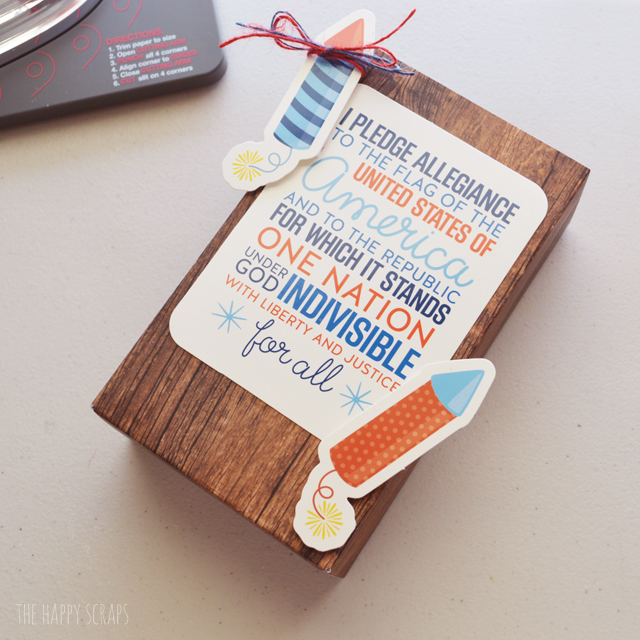 DIRECTIONS:
1. Trim paper to size
2. Open
all 4 corners
4. Align corner to
5. Close
6. slit on 4 corners
I PLEDGE ALLEGIANCE
TO THE FLAG OF THE
UNITED STATES OF
America
AND TO THE REPUBLIC
FOR WHICH IT STANDS
ONE NATION
UNDER GOD INDIVISIBLE
WITH LIBERTY AND JUSTICE
for all
THE HAPPY SCRAPS